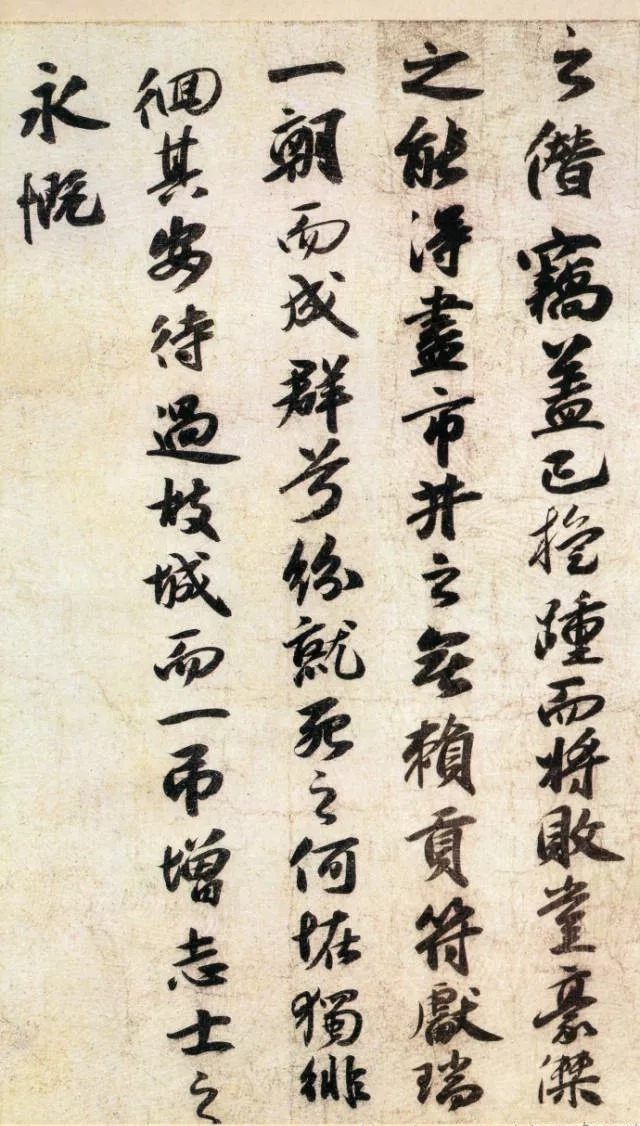 之僭竊盖已抢踵而将敗豈豪傑
之能得盡市井之無賴貢符獻瑞
一朝而成群兮紛就死之何怪獨徘
徊其安待過故城而一吊增志士之
永慨